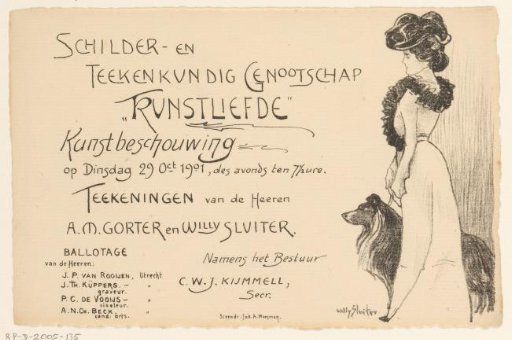 SCHILDER- EN
TEEKENKUNDIG GENOOTSCHAP
„KUNSTLIEFDE"
Kunstbeschouwing
op Dinsdag 29 Oct 1901, des avonds ten 7½ ure.
TEEKENINGEN van de Heeren
A.M. GORTER en WILLY SLUITER.
BALLOTAGE
van de Heeren:
J. P. VAN ROOIJEN, Utrecht
J. TH. KÜPPERS — "
graveur.
P. C. DE VOOIJS — "
A. N. CH. BECK — "
cand. arts.
Namens het Bestuur
C. W. J. KIJMMELL,
Secr.
Willy Sluiter
RP-D-2005-135